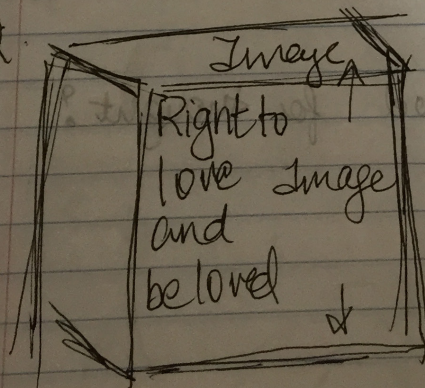 Image
Right to
love Image
and
beloved